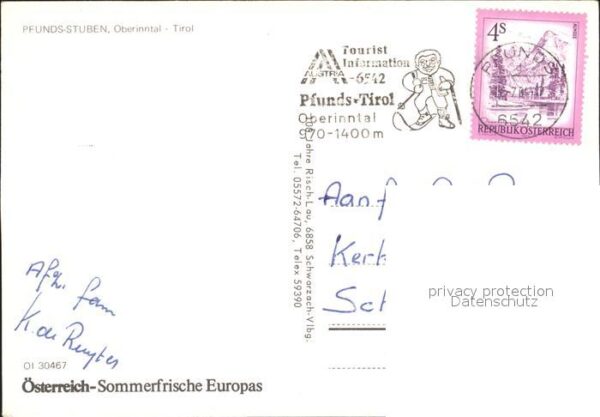 PFUNDS-STUBEN, Oberinntal - Tirol
Tourist
Information
AUSTRIA
-6542
Pfunds-Tirol
Oberinntal
970-1400m
4S
REPUBLIK ÖSTERREICH
PFUNDS
6542
Risch-Lau, 6858 Schwarzach-Vlbg.
Tel. 05572-64706, Telex 59390
Aan f
Kerk
Sch
privacy protection
Datenschutz
Afz. fam
K. de Ruyter
OI 30467
Österreich-Sommerfrische Europas